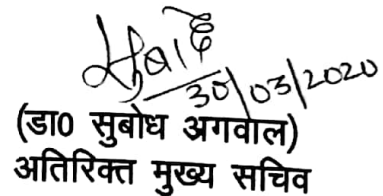 सुबोध
30/03/2020
(डा0 सुबोध अगवाल)
अतिरिक्त मुख्य सचिव